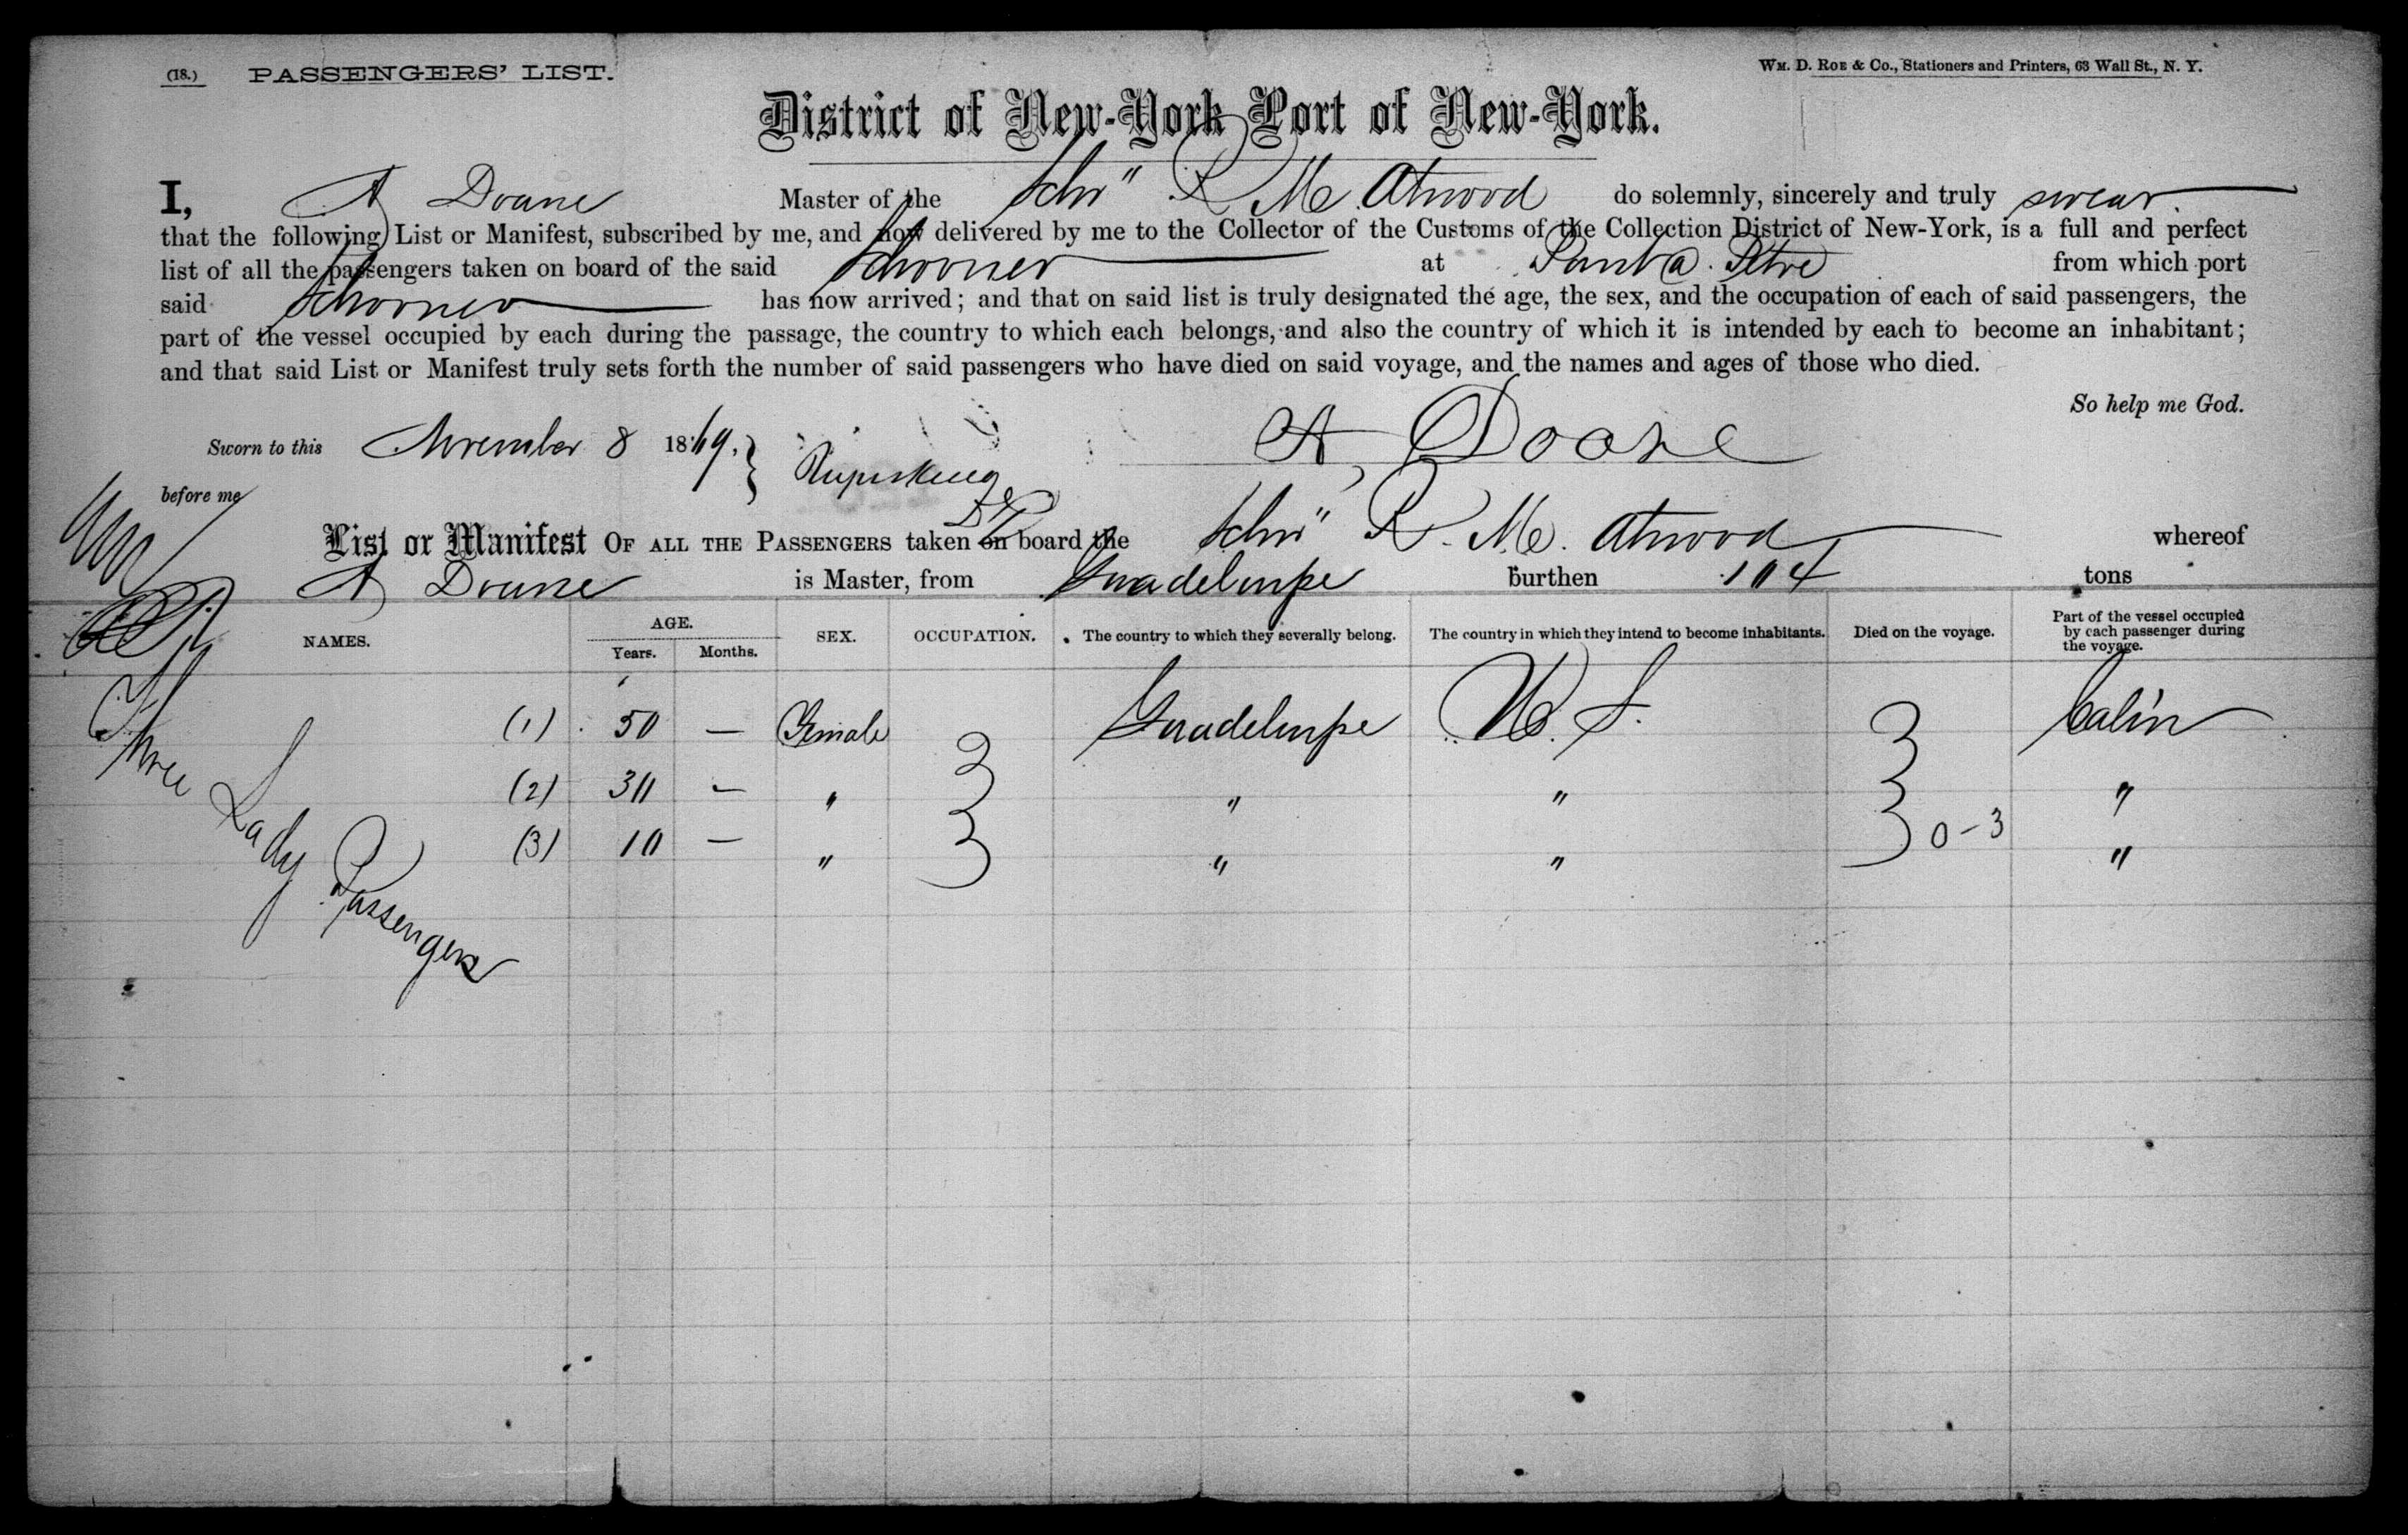 (18.) PASSENGERS' LIST.
WM. D. ROE & Co., Stationers and Printers, 63 Wall St., N. Y.
District of New-York Port of New-York.
I, A Doane Master of the Schr" R M Atwood do solemnly, sincerely and truly swear
that the following List or Manifest, subscribed by me, and now delivered by me to the Collector of the Customs of the Collection District of New-York, is a full and perfect
list of all the passengers taken on board of the said Schooner at Point a Petre from which port
said Schooner has now arrived; and that on said list is truly designated the age, the sex, and the occupation of each of said passengers, the
part of the vessel occupied by each during the passage, the country to which each belongs, and also the country of which it is intended by each to become an inhabitant;
and that said List or Manifest truly sets forth the number of said passengers who have died on said voyage, and the names and ages of those who died.
So help me God.
Sworn to this November 8 1869. A Doane
before me
List or Manifest OF ALL THE PASSENGERS taken on board the Schr" R. M. Atwood whereof
A Doane is Master, from Guadeloupe burthen 104 tons
NAMES. AGE. Years. Months. SEX. OCCUPATION. The country to which they severally belong. The country in which they intend to become inhabitants. Died on the voyage. Part of the vessel occupied by each passenger during the voyage.
(1) 50 — Female Guadeloupe U. S. Cabin
(2) 30 — " " " "
(3) 10 — " " " 0-3 "
Three Lady Passengers